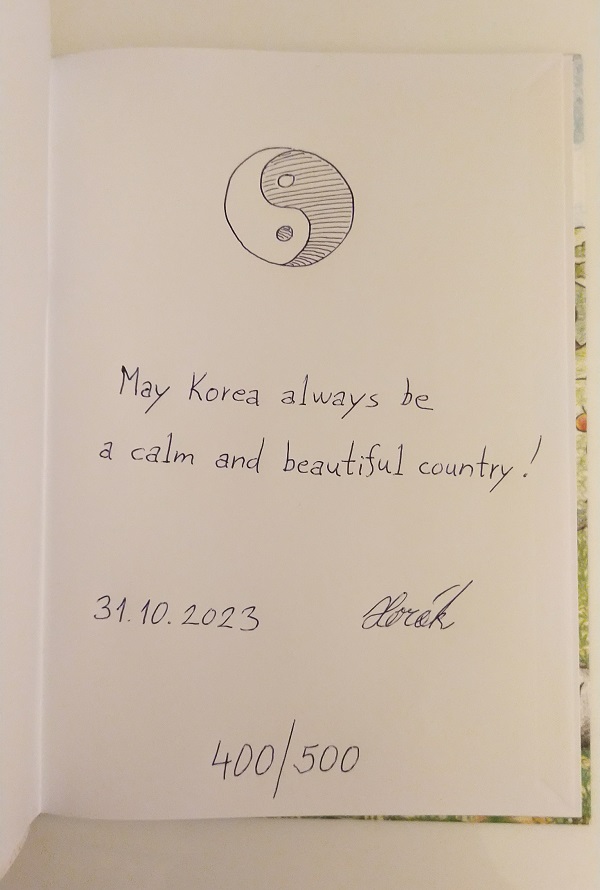 May Korea always be
a calm and beautiful country!
31.10.2023 Horák
400/500